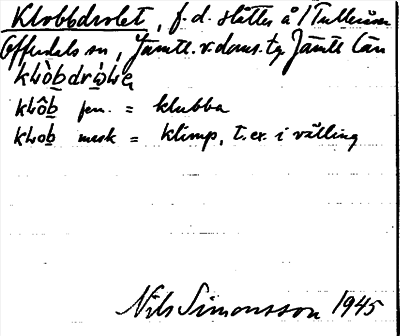 Klobbdrolet, f.d. slåtter å / Tulleråsen
Offerdals sn, Jämtl. v. doms. tg Jämtl län
kɫòb̲dròɫe
kɫôb̲ fem. = klubba
kɫob̲ mask = klimp, t.ex. i välling
Nils Simonsson 1945